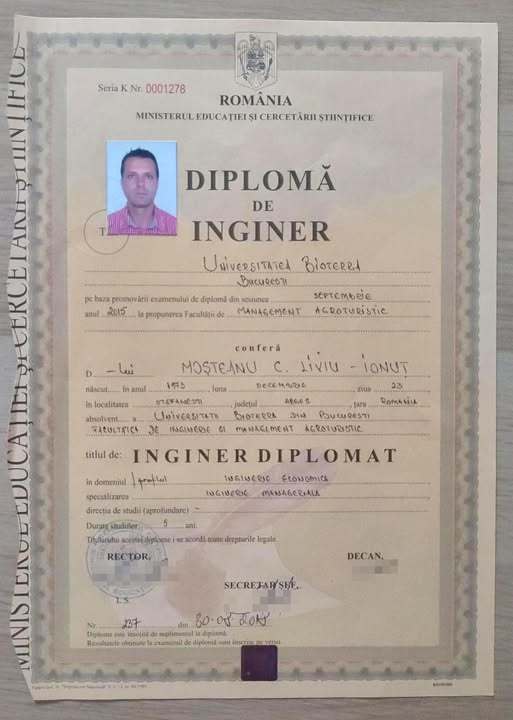 Seria K Nr. 0001278
ROMÂNIA
MINISTERUL EDUCAȚIEI ȘI CERCETĂRII ȘTIINȚIFICE
DIPLOMĂ
DE
INGINER
T.
UNIVERSITATEA BIOTERRA
BUCURESTI
pe baza promovării examenului de diplomă din sesiunea SEPTEMBRIE
anul 2015 la propunerea Facultății de MANAGEMENT AGROTURISTIC
conferă
D – lui MOȘTEANU C. LIVIU - IONUȚ
născut în anul 1973 luna DECEMBRIE ziua 23
în localitatea STEFANESTI județul ARGES țara ROMANIA
absolvent a UNIVERSITATII BIOTERRA DIN BUCURESTI
FACULTATEA DE INGINERIE SI MANAGEMENT AGROTURISTIC
titlul de: INGINER DIPLOMAT
în domeniul / profilul INGINERIE ECONOMICA
specializarea INGINERIE MANAGERIALA
direcția de studii (aprofundare) –
Durata studiilor 5 ani.
Titularului acestei diplome i se acordă toate drepturile legale.
RECTOR, DECAN,
SECRETAR ȘEF,
L.S.
Nr. 237 din
Diploma este însoțită de suplimentul la diplomă.
Rezultatele obținute la examenul de diplomă sunt înscrise pe verso.
MINISTERUL EDUCAȚIEI ȘI CERCETĂRII ȘTIINȚIFICE